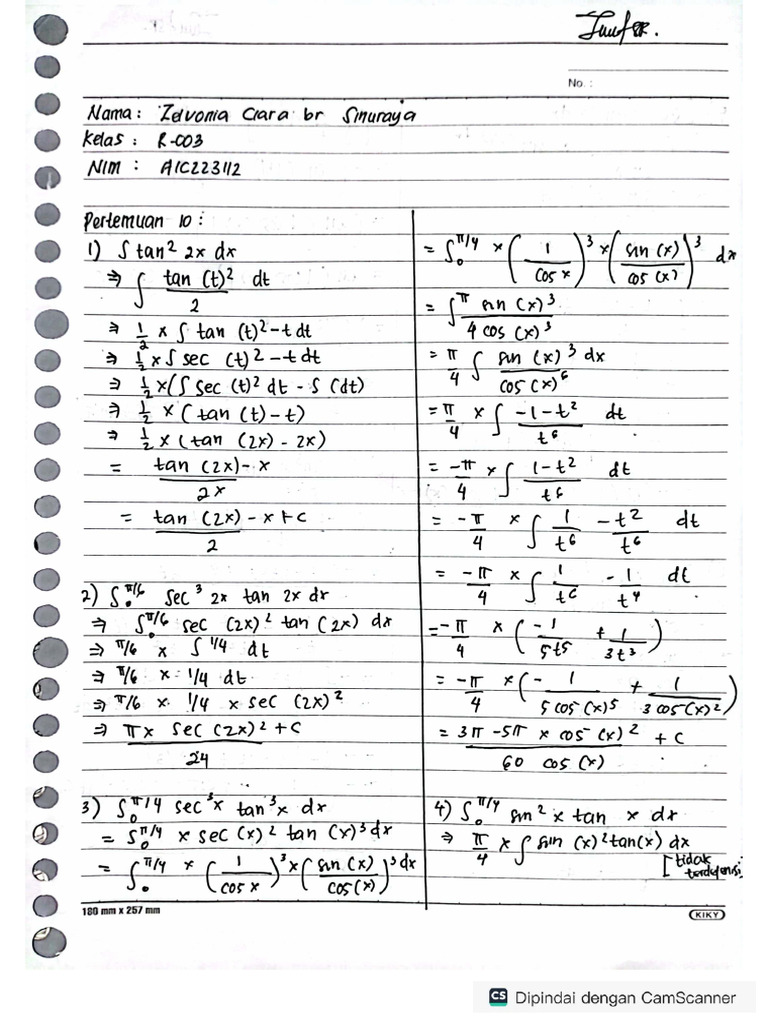 No. :
Nama : Zelvonia Clara br Sinuraya
Kelas : R-003
NIM : A1C223112
Pertemuan 10 :
1) ∫ tan² 2x dx
⇒ ∫ tan (t)² / 2 dt
⇒ 1/2 x ∫ tan (t)² - t dt
⇒ 1/2 x ∫ sec (t)² - t dt
⇒ 1/2 x (∫ sec (t)² dt - ∫ (dt)
⇒ 1/2 x (tan (t) - t)
⇒ 1/2 x (tan (2x) - 2x)
= tan (2x) - x / 2x
= tan (2x) - x + C / 2
2) ∫₀^π/6 sec³ 2x tan 2x dx
⇒ ∫₀^π/6 sec (2x)² tan (2x) dx
⇒ π/6 x ∫ 1/4 dt
⇒ π/6 x 1/4 dt
⇒ π/6 x 1/4 x sec (2x)²
⇒ πx sec (2x)² + C / 24
3) ∫₀^π/4 sec³x tan³x dx
= ∫₀^π/4 x sec (x)² tan (x)³ dx
= ∫₀^π/4 x (1 / cos x)³ x (sin (x) / cos (x))³ dx
= ∫₀^π/4 x (1 / cos x)³ x (sin (x) / cos (x))³ dx
= ∫^π sin (x)³ / 4 cos (x)³
= π/4 ∫ sin (x)³ dx / cos (x)⁶
= π/4 x ∫ -1-t² / t⁶ dt
= -π/4 x ∫ 1-t² / t⁶ dt
= -π/4 x ∫ 1/t⁶ - t²/t⁶ dt
= -π/4 x ∫ 1/t⁶ - 1/t⁴ dt
= -π/4 x (-1/5t⁵ + 1/3t³)
= -π/4 x (- 1/5 cos (x)⁵ + 1/3 cos (x)²)
= 3π - 5π x cos (x)² / 60 cos (x) + C
4) ∫₀^π/4 sin² x tan x dx
⇒ π/4 x ∫ sin (x)² tan(x) dx
[tidak
terdefinisi
180 mm x 257 mm
KIKY
CS Dipindai dengan CamScanner